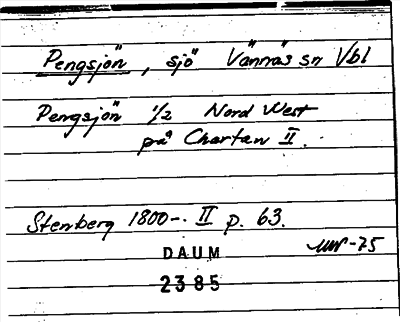 Pengsjön, sjö Vännäs sn Vbl
Pengsjön 1/2 Nord West
på Chartan II.
Stenberg 1800-. II p. 63.
DAUM
2385